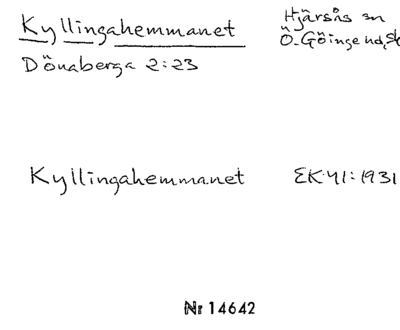 Kyllingahemmanet
Hjärsås sn
Dönaberga 2:23
Ö. Göinge hd, Sk
Kyllingahemmanet EK 41:1931
Nr 14642